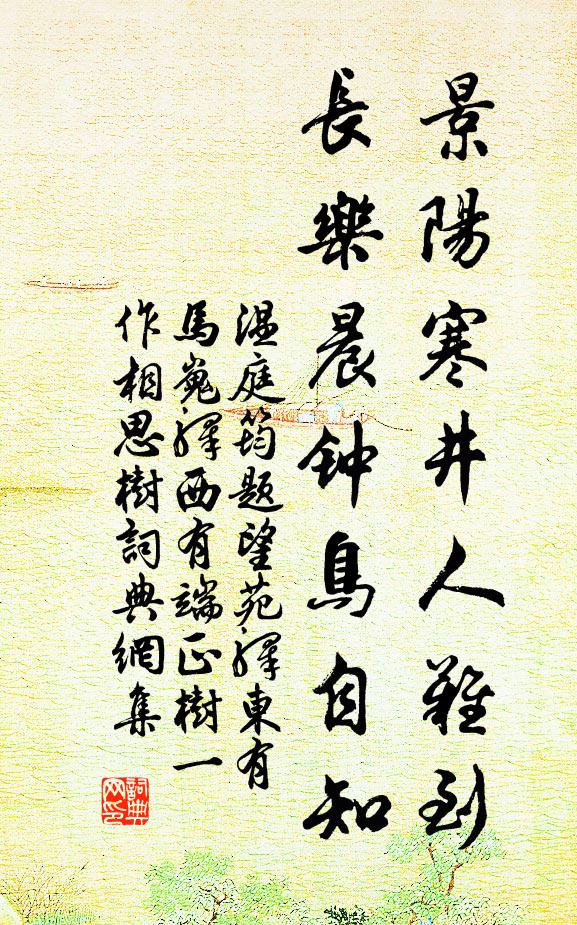 景陽寒井人難到
長樂晨钟鳥自知
温庭筠題望苑驛東有
馬嵬驛西有端正樹一
作相思樹詞典網集
詞典
网印